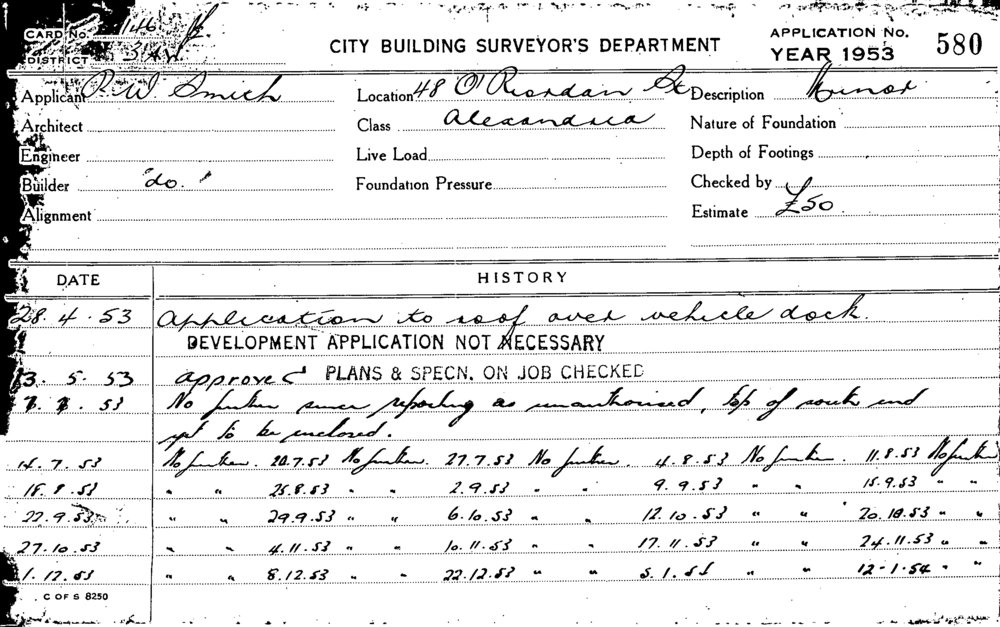 CARD No. 146
DISTRICT
CITY BUILDING SURVEYOR'S DEPARTMENT
APPLICATION No. 580
YEAR 1953
Applicant R. W. Smith Location 48 O'Riordan St Description Minor
Architect Class Alexandria Nature of Foundation
Engineer Live Load Depth of Footings
Builder "do." Foundation Pressure Checked by
Alignment Estimate £50
DATE HISTORY
28.4.53 Application to roof over vehicle dock.
DEVELOPMENT APPLICATION NOT NECESSARY
13.5.53 approved PLANS & SPECN. ON JOB CHECKED
7.7.53 No further since reporting as unauthorised, top of south end
yet to be enclosed.
14.7.53 No further. 20.7.53 No further. 27.7.53 No further. 4.8.53 No further. 11.8.53 No further
18.8.53 " " 25.8.53 " " 2.9.53 " " 9.9.53 " " 15.9.53 " "
22.9.53 " " 29.9.53 " " 6.10.53 " " 12.10.53 " " 20.10.53 " "
27.10.53 " " 4.11.53 " " 10.11.53 " " 17.11.53 " " 24.11.53 " "
1.12.53 " " 8.12.53 " " 22.12.53 " " 5.1.54 " " 12-1.54 " "
C OF S 8250